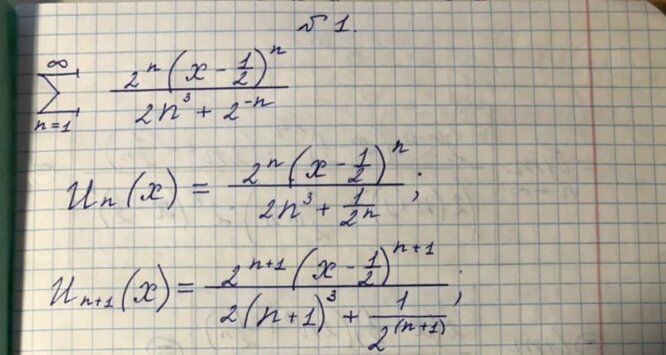 № 1.
\sum_{n=1}^{\infty} \frac{2^n (x - \frac{1}{2})^n}{2n^3 + 2^{-n}}
u_n(x) = \frac{2^n (x - \frac{1}{2})^n}{2n^3 + \frac{1}{2^n}};
u_{n+1}(x) = \frac{2^{n+1} (x - \frac{1}{2})^{n+1}}{2(n+1)^3 + \frac{1}{2^{(n+1)}}};